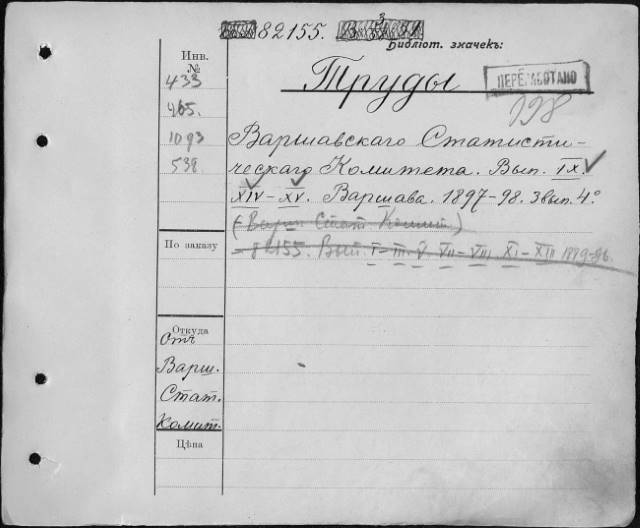 82155.
Библіот. значекъ:
Инв.
№
Труды
ПЕРЕРАБОТАНО
433
465.
1093
538
Варшавскаго Статисти-
ческаго Комитета. Вып. IX.
XIV–XV. Варшава. 1897-98. 3 вып. 4°
(Варш. Стат. Комит.)
По заказу
– 82155. Вып. I–III. V. VII–VIII. XI–XIII 1889-96.
Откуда
Отъ
Варш.
Стат.
Комит.
Цѣна